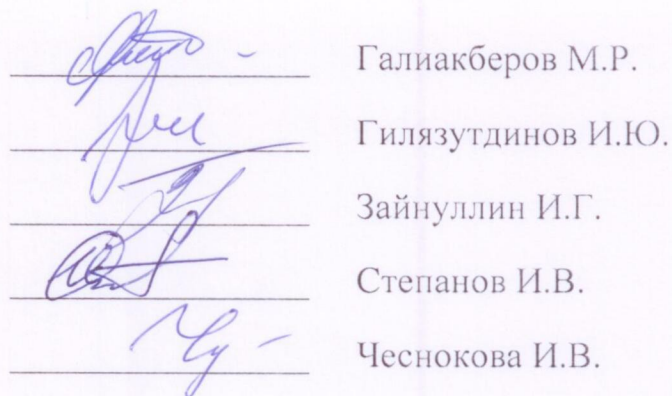 Галиакберов М.Р.
Гилязутдинов И.Ю.
Зайнуллин И.Г.
Степанов И.В.
Чеснокова И.В.